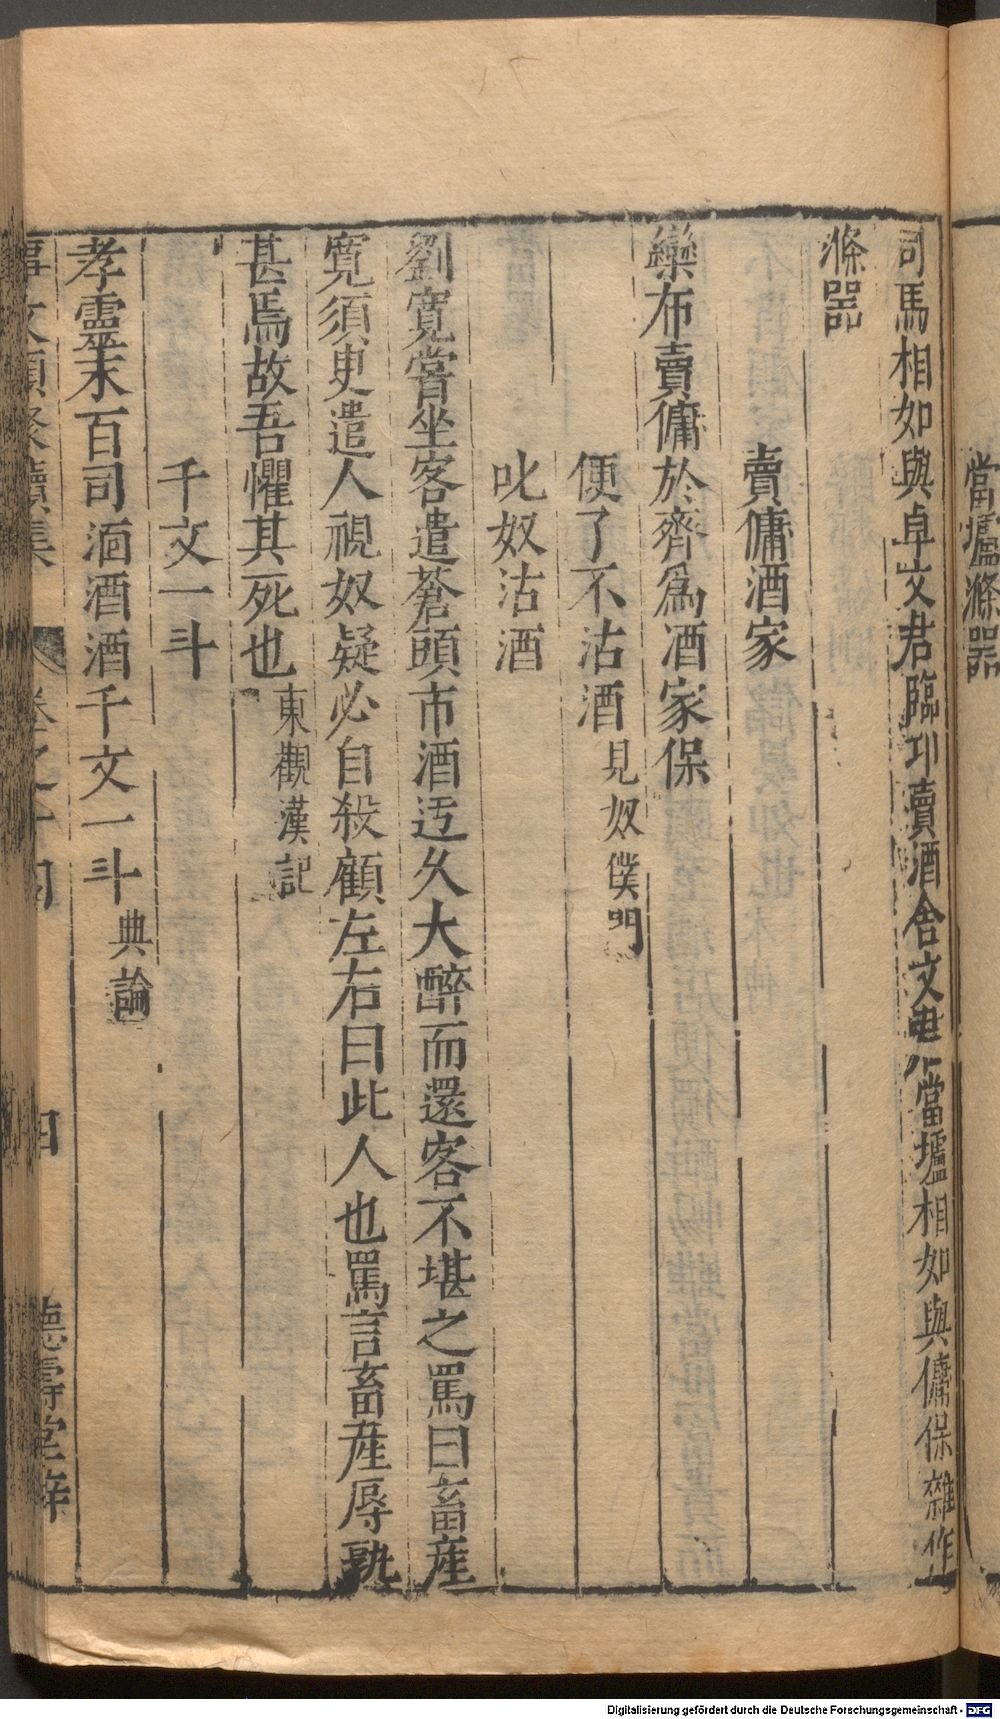 當壚滌器
司馬相如與卓文君臨卭賣酒舍文君當壚相如與傭保雜作
滌器
賣傭酒家
欒布賣傭於齊爲酒家保
便了不沽酒見奴僕門
叱奴沽酒
劉寬嘗坐客遣蒼頭市酒迃久大醉而還客不堪之罵曰畜產
寬須吏遣人視奴疑必自殺顧左右曰此人也罵言畜產辱孰
甚焉故吾懼其死也東觀漢記
千文一斗
孝靈末百司湎酒酒千文一斗典論
事文類聚續集 卷之十四 四 德壽堂梓
Digitalisierung gefördert durch die Deutsche Forschungsgemeinschaft - DFG